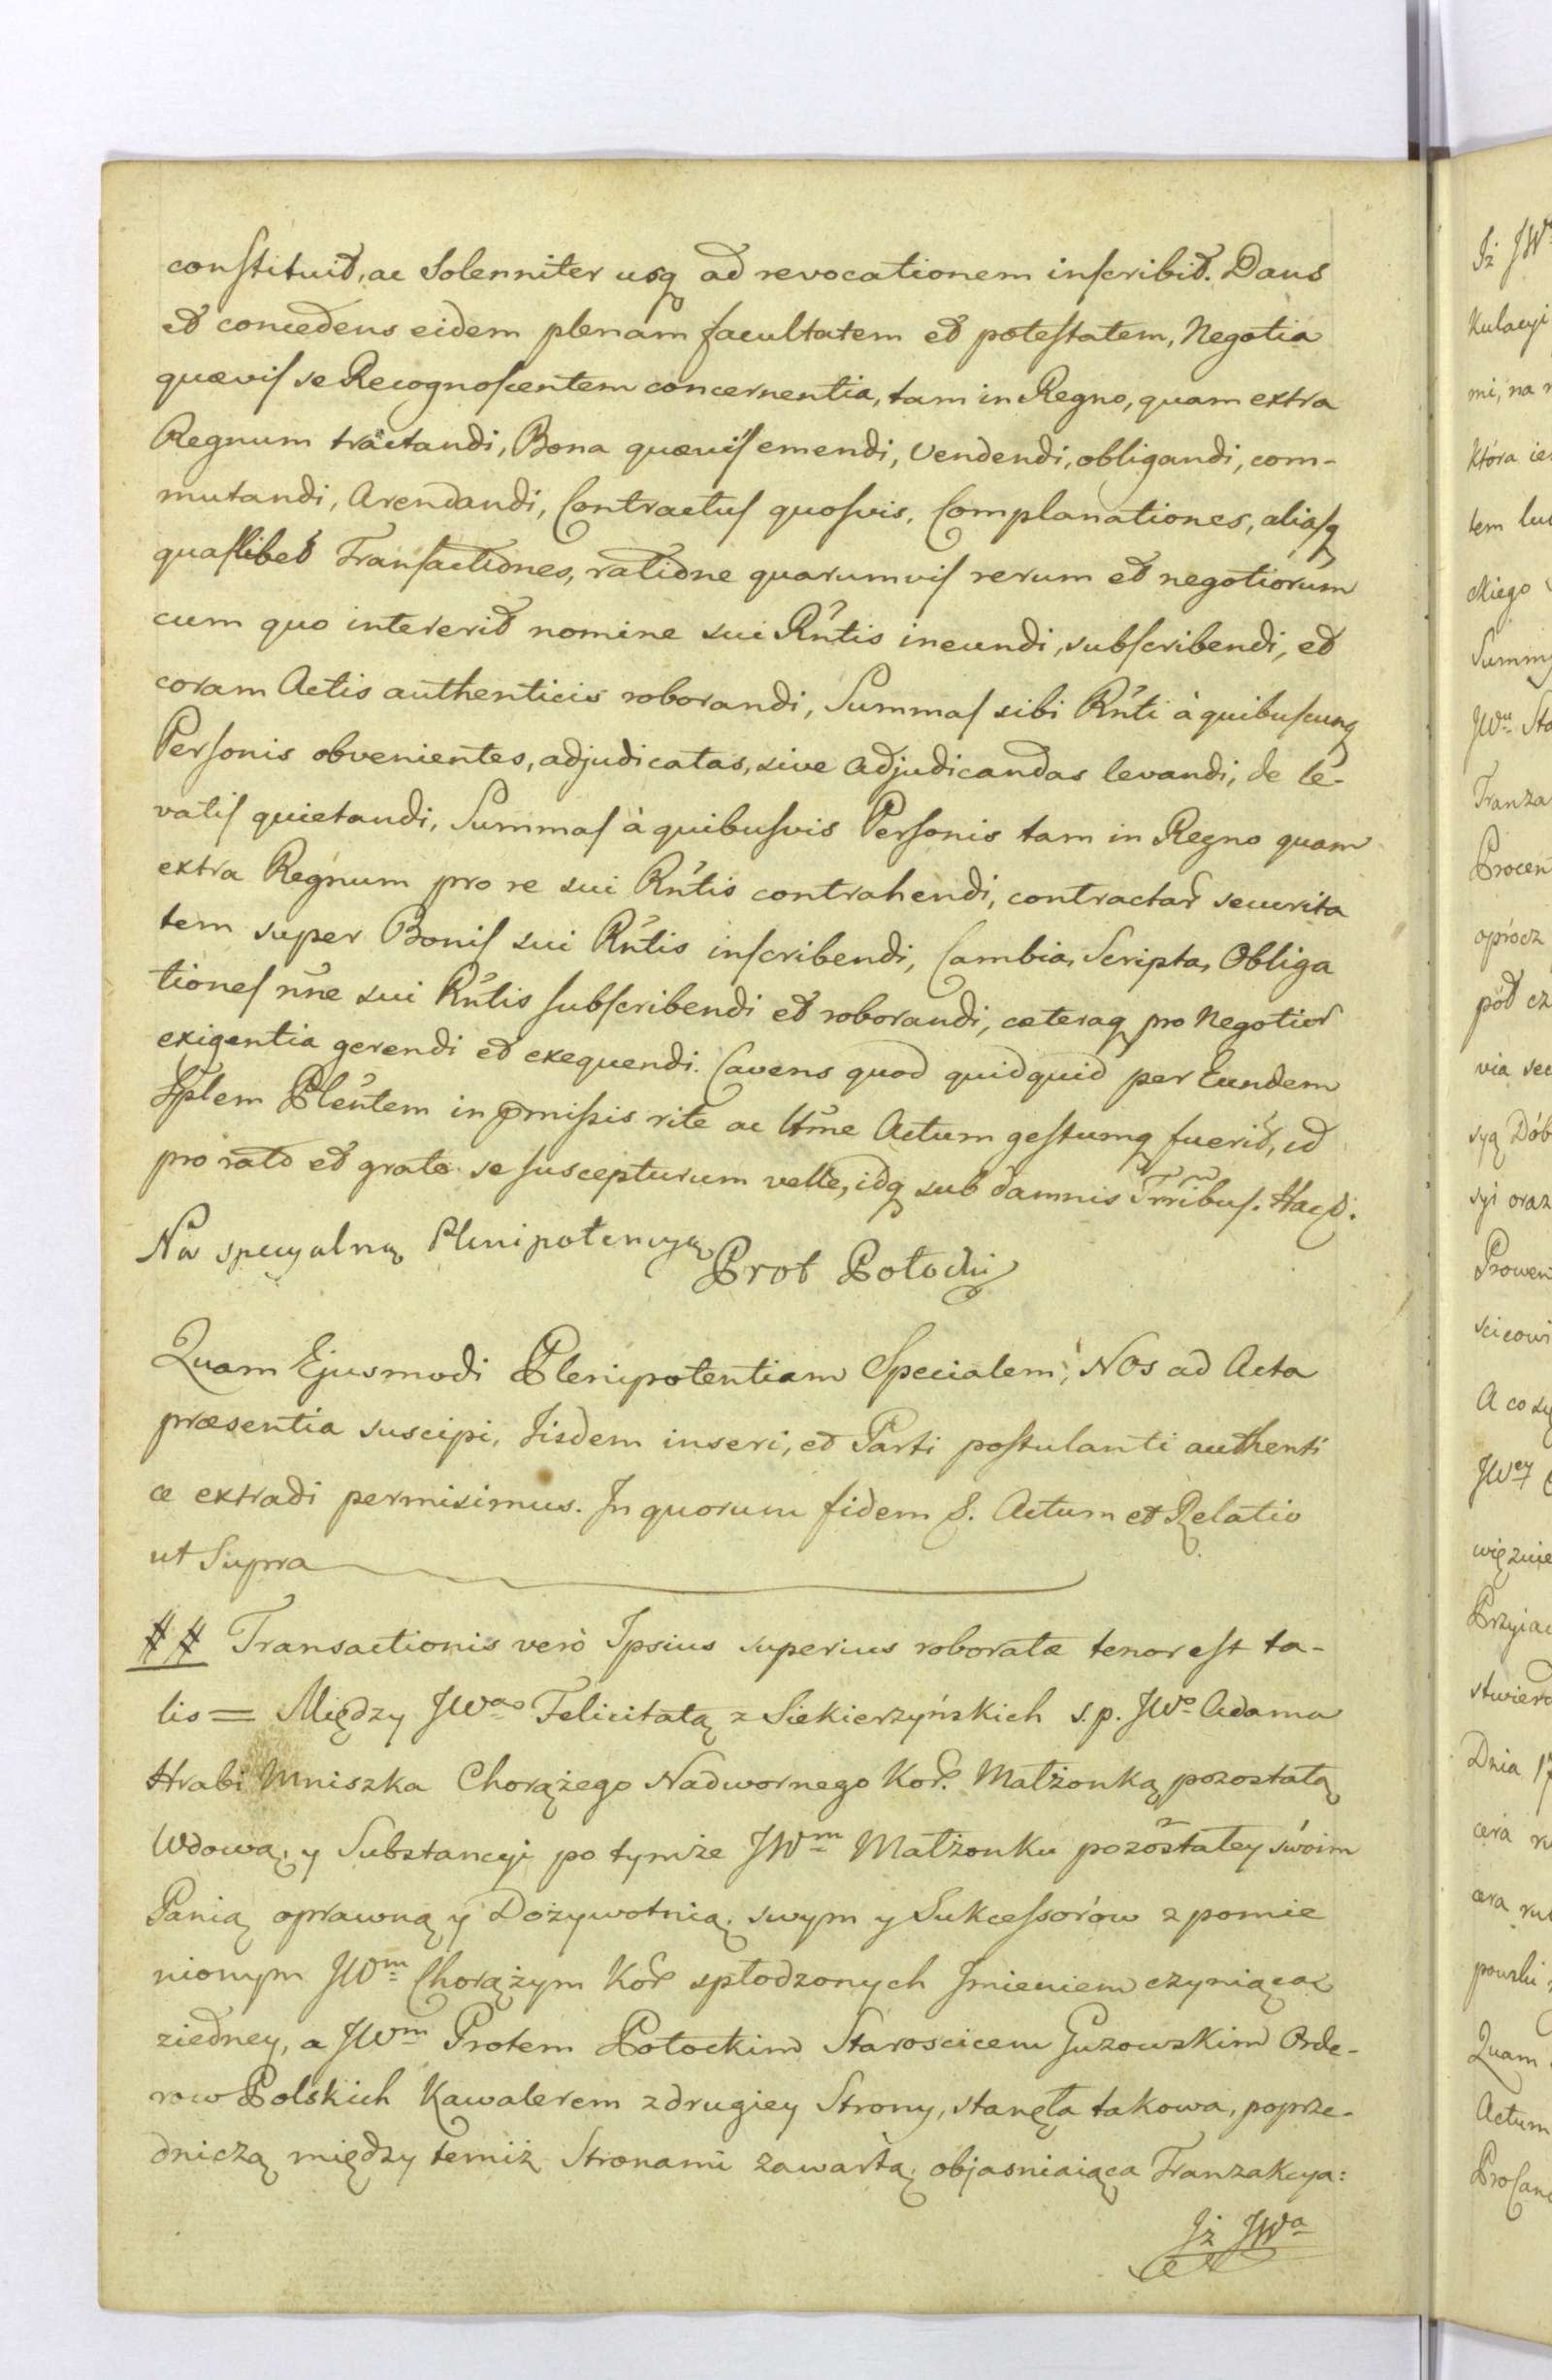 constituit, ac Solenniter usq ad revocationem inscribit. Dans
et concedens eidem plenam facultatem et potestatem, Negotia
quævis se Recognoscentem concernentia, tam in Regno, quam extra
Regnum tractandi, Bona quævis emendi, Vendendi, obligandi, com-
mutandi, Arendandi, Contractus quosvis, Complanationes, aliasq
quaslibet Transactiones, ratione quarumvis rerum et negotiorum
cum quo intererit nomine sui Rntis ineundi, subscribendi, et
coram Actis authenticis roborandi, Summas sibi Rnti à quibuscunq
Personis obvenientes, adjudicatas, sive Adjudicandas levandi, de le-
vatis quietandi, Summas à quibusvis Personis tam in Regno quam
extra Regnum pro re sui Rntis contrahendi, contractar securita
tem super Bonis sui Rntis inscribendi, Cambia, Scripta, Obliga
tiones nne sui Rntis subscribendi et roborandi, cæteraq pro Negotior
exigentia gerendi et exequendi. Cavens quod quidquid per Eundem
Splem Plentem in pmissis rite ac ltme Actum gestumq fuerit, id
pro rato et grato se suscepturum velle, idq sub damnis Trribus. Hæc
Na specyalną Plenipotencyą
Prot Potocki
Quam Ejusmodi Plenipotentiam Specialem, Nos ad Acta
præsentia suscipi, Iisdem inseri, et Parti postulanti authenti
ce extradi permisimus. In quorum fidem S. Actum et Relatio
ut Supra
## Transactionis verò Ipsius superius roboratæ tenor est ta-
lis = Między JWa Felicitatą z Siekierzyńskich s.p. JWo Adama
Hrabi Mniszka Chorążego Nadwornego Kor. Małżonką pozostałą
Wdową, y Substancyi po tymże JWm Małżonku pozostałey swoim
Panią oprawną y Dożywotnią, swym y Sukcessorów z pomie
nionym JWm Chorążym Kor spłodzonych Imieniem czyniącą
ziedney, a JWm Protem Potockim Staroscicem Guzowskim Orde-
row Polskich Kawalerem zdrugiey Strony, stanęła takowa, poprze-
dniczą między temiż Stronami zawartą, objasniaiąca Tranzakcya:
Iż JWa
Iż JW
kulacyi
mi, na
która ie
tem
ckiego
Summ
Tranza
Procen
oprócz
pod cz
via
syą Dób
syi oraz
Prowen
scicowi
A co
więznie
Przyiac
stwierd
Dnia
Quam
Actum